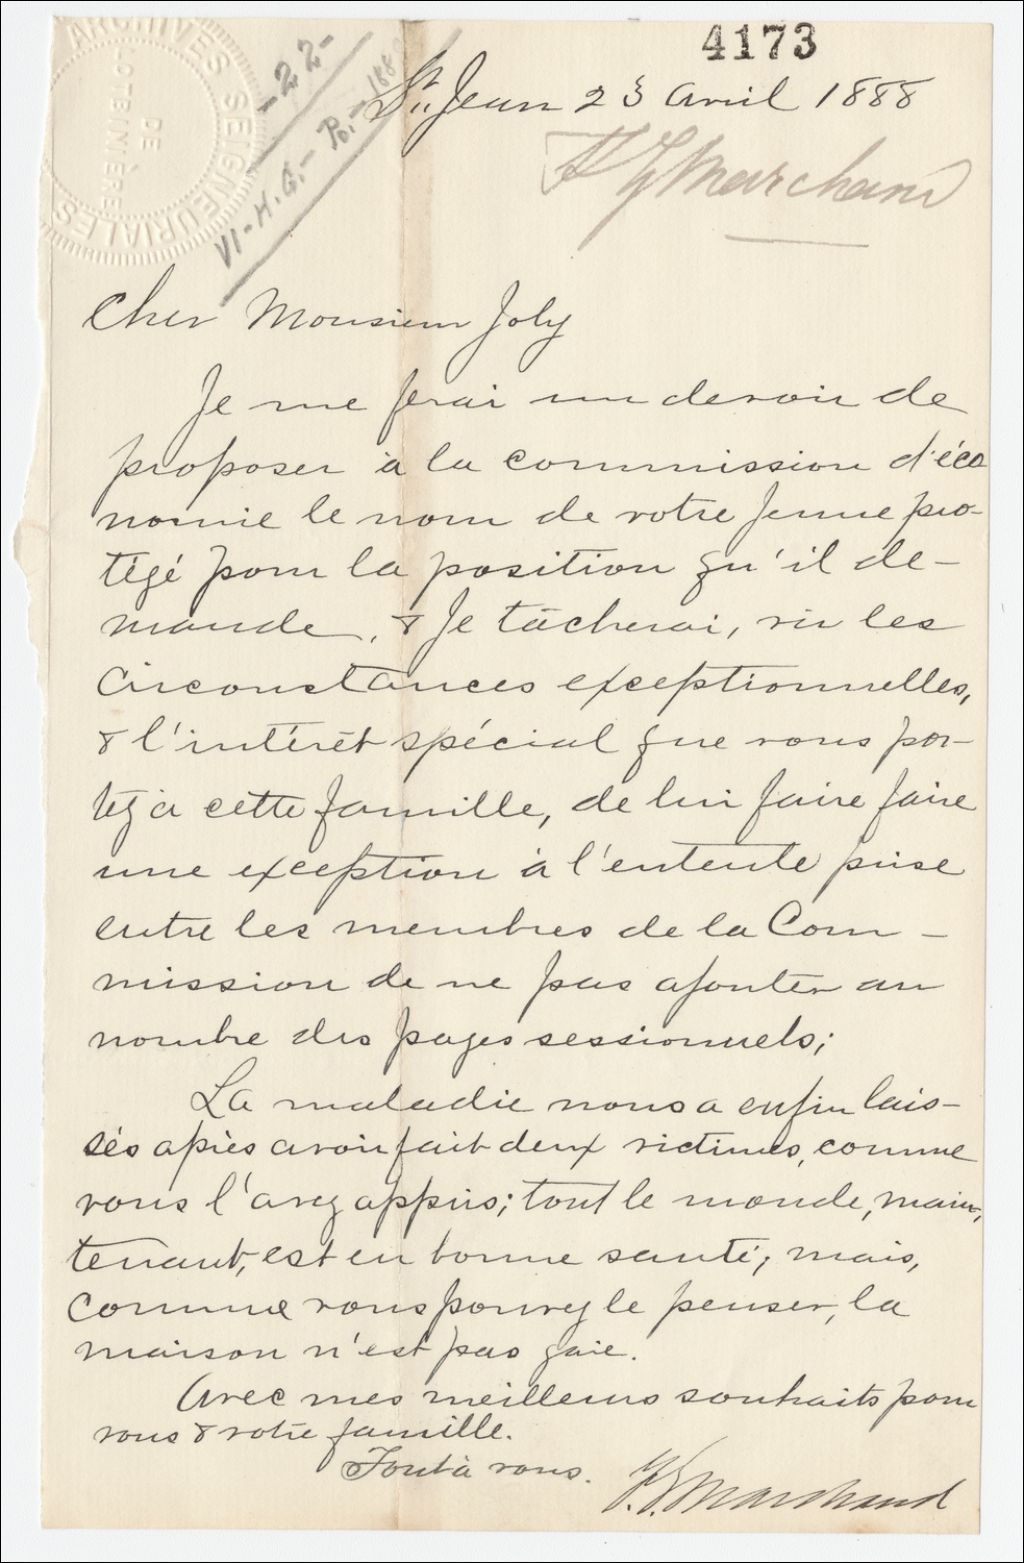 4173
ARCHIVES SEIGNEURIALES
DE
LOTBINIÈRE
-22-
VI-H.G.-Po.-188
St. Jean 23 avril 1888
F G Marchand
Cher Monsieur Joly
Je me ferai un devoir de
proposer à la commission d'éco
nomie le nom de votre jeune pro-
tégé pour la position qu'il de-
mande, & Je tâcherai, vu les
circonstances exceptionnelles,
& l'intérêt spécial que vous por-
tez à cette famille, de lui faire faire
une exception à l'entente prise
entre les membres de la Com-
mission de ne pas ajouter au
nombre des pages sessionnels;
La maladie nous a enfin lais-
sés après avoir fait deux victimes, comme
vous l'avez appris; tout le monde, main-
tenant, est en bonne santé; mais,
comme vous pouvez le penser, la
maison n'est pas gaie.
Avec mes meilleurs souhaits pour
vous & votre famille.
Tout à vous.
F. G. Marchand